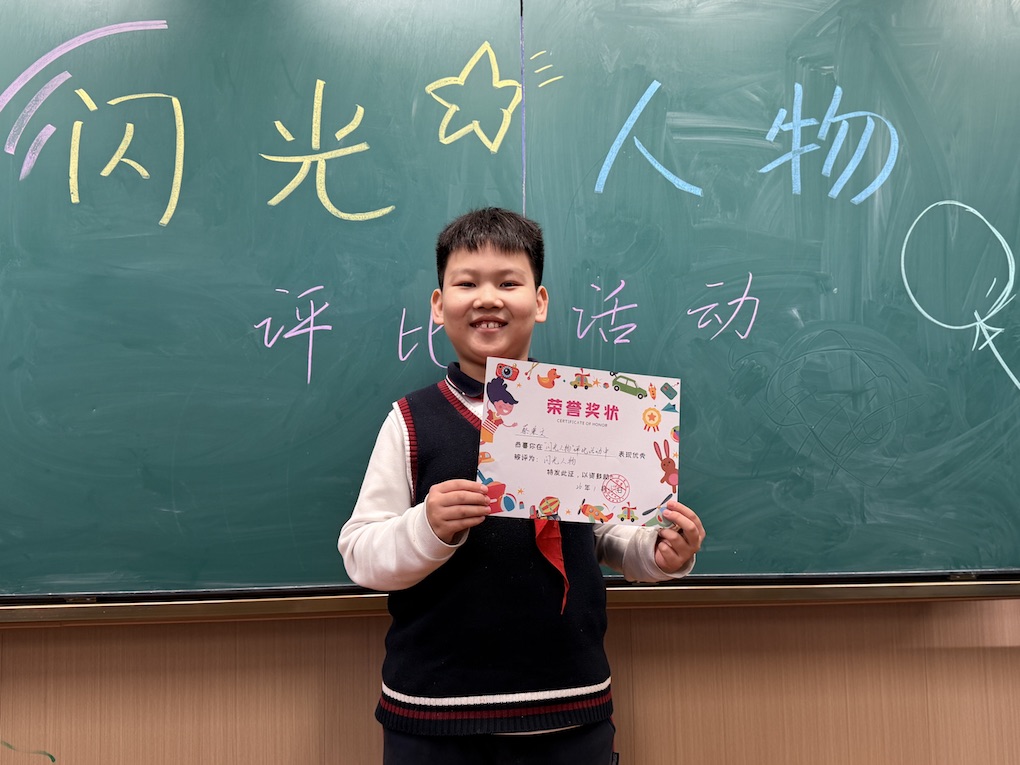 闪光人物
评比活动
荣誉奖状
CERTIFICATE OF HONOR
恭喜你在"闪光人物"评比活动中 表现优秀
被评为: 闪光人物
特发此证,以资鼓励!